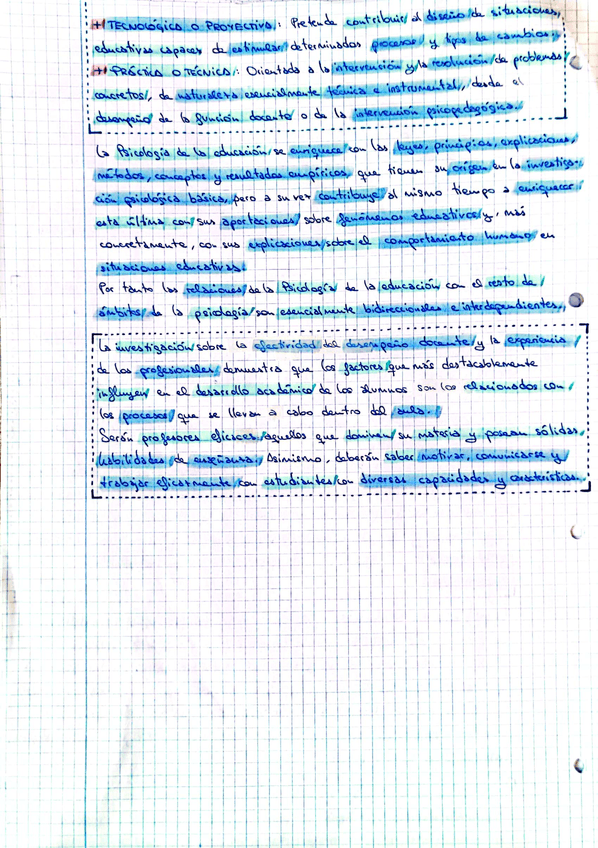 +| TECNOLÓGICA O PROYECTIVA: Pretende contribuir al diseño de situaciones
educativas capaces de estimular determinados procesos y tipos de cambios.
+| PRÁCTICA O TÉCNICA: Orientada a la intervención y la resolución de problemas
concretos, de naturaleza esencialmente técnica e instrumental, desde el
desempeño de la función docente o de la intervención psicopedagógica.
La Psicología de la educación se enriquece con las leyes, principios, explicaciones,
métodos, conceptos y resultados empíricos, que tienen su origen en la investiga-
ción psicológica básica, pero a su vez contribuye al mismo tiempo a enriquecer
esta última con sus aportaciones sobre fenómenos educativos y, más
concretamente, con sus explicaciones sobre el comportamiento humano en
situaciones educativas.
Por tanto las relaciones de la Psicología de la educación con el resto de
ámbitos de la psicología son esencialmente bidireccionales e interdependientes.
La investigación sobre la efectividad del desempeño docente y la experiencia
de los profesionales, demuestra que los factores que más destacablemente
influyen en el desarrollo académico de los alumnos son los relacionados con
los procesos que se llevan a cabo dentro del aula.
Serán profesores eficaces aquellos que dominen su materia y posean sólidas
habilidades de enseñanza. Asimismo, deberán saber motivar, comunicarse y
trabajar eficazmente con estudiantes con diversas capacidades y características.